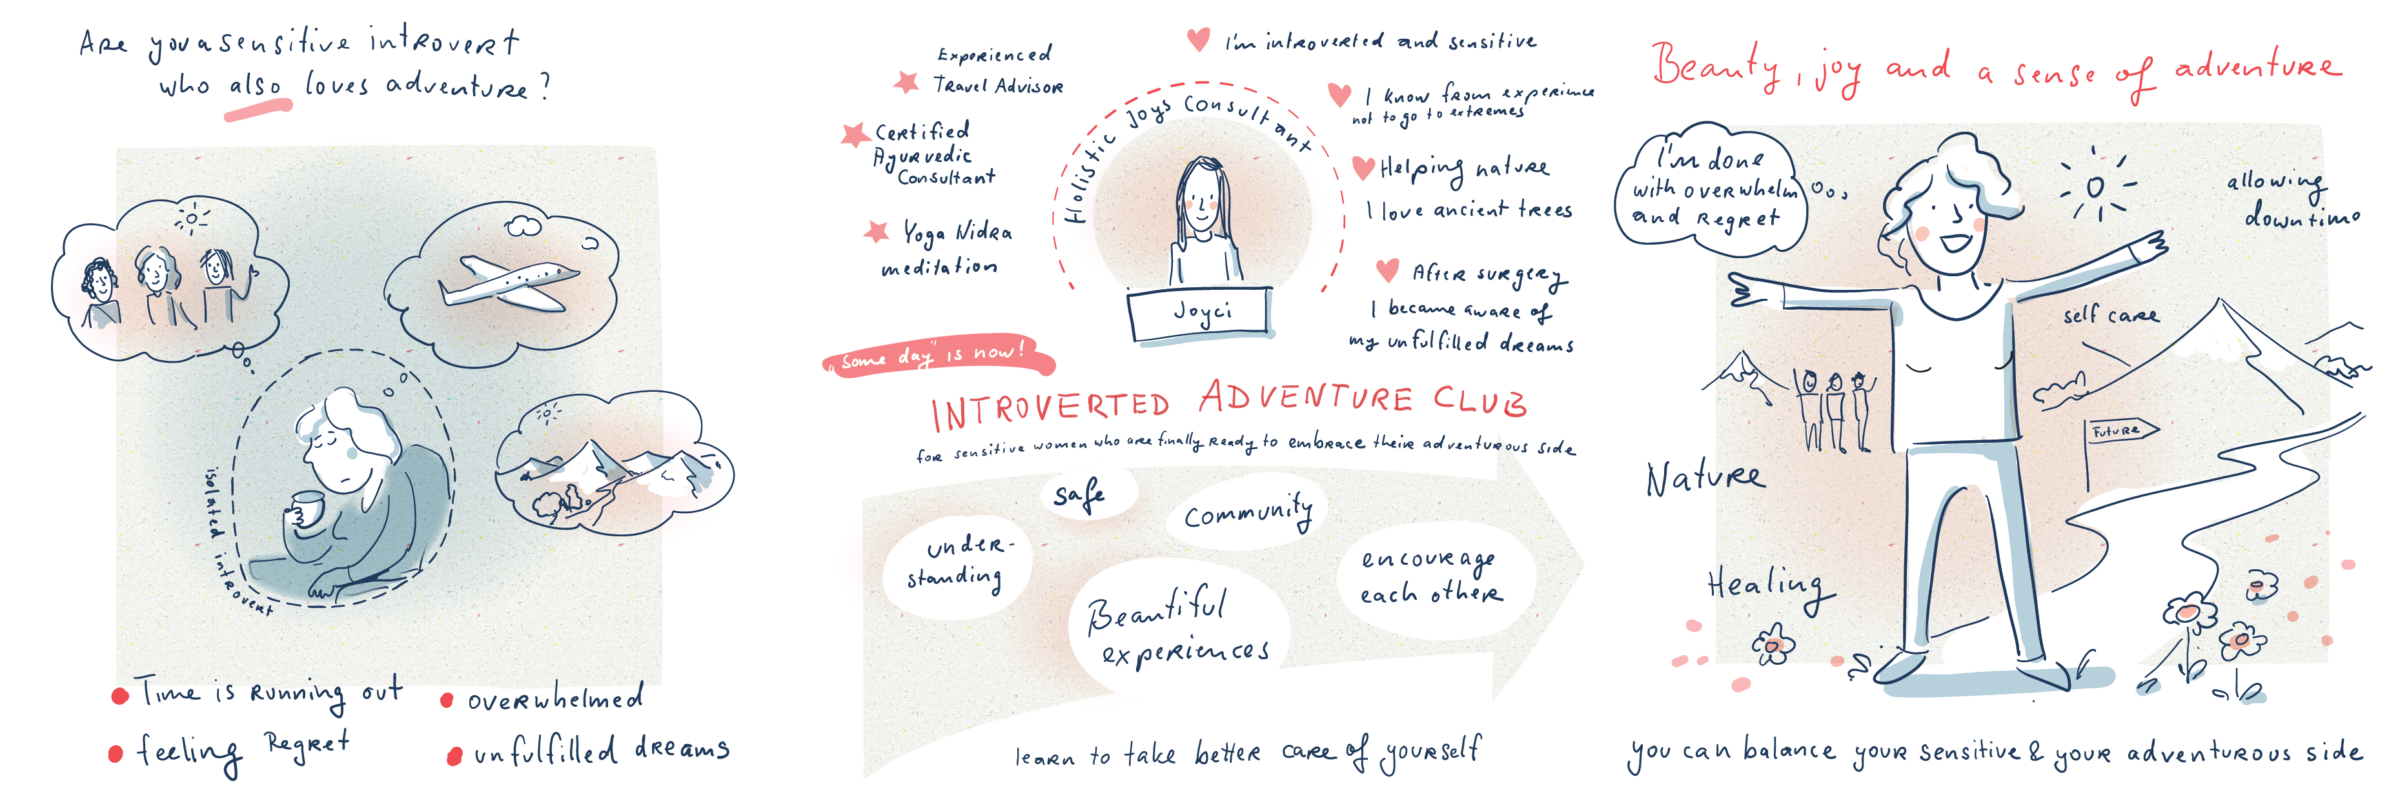 Are you a sensitive introvert
who also loves adventure?
isolated introvert
Time is running out
feeling Regret
overwhelmed
unfulfilled dreams
Experienced
Travel Advisor
Certified
Ayurvedic
Consultant
Yoga Nidra
meditation
Holistic Joys Consultant
Joyci
I'm introverted and sensitive
I know from experience
not to go to extremes
Helping nature
I love ancient trees
After surgery
I became aware of
my unfulfilled dreams
„Some day" is now!
INTROVERTED ADVENTURE CLUB
for sensitive women who are finally ready to embrace their adventurous side
under-
standing
safe
Community
Beautiful
experiences
encourage
each other
learn to take better care of yourself
Beauty, joy and a sense of adventure
I'm done
with overwhelm
and regret
allowing
downtime
self care
Future
Nature
Healing
you can balance your sensitive & your adventurous side